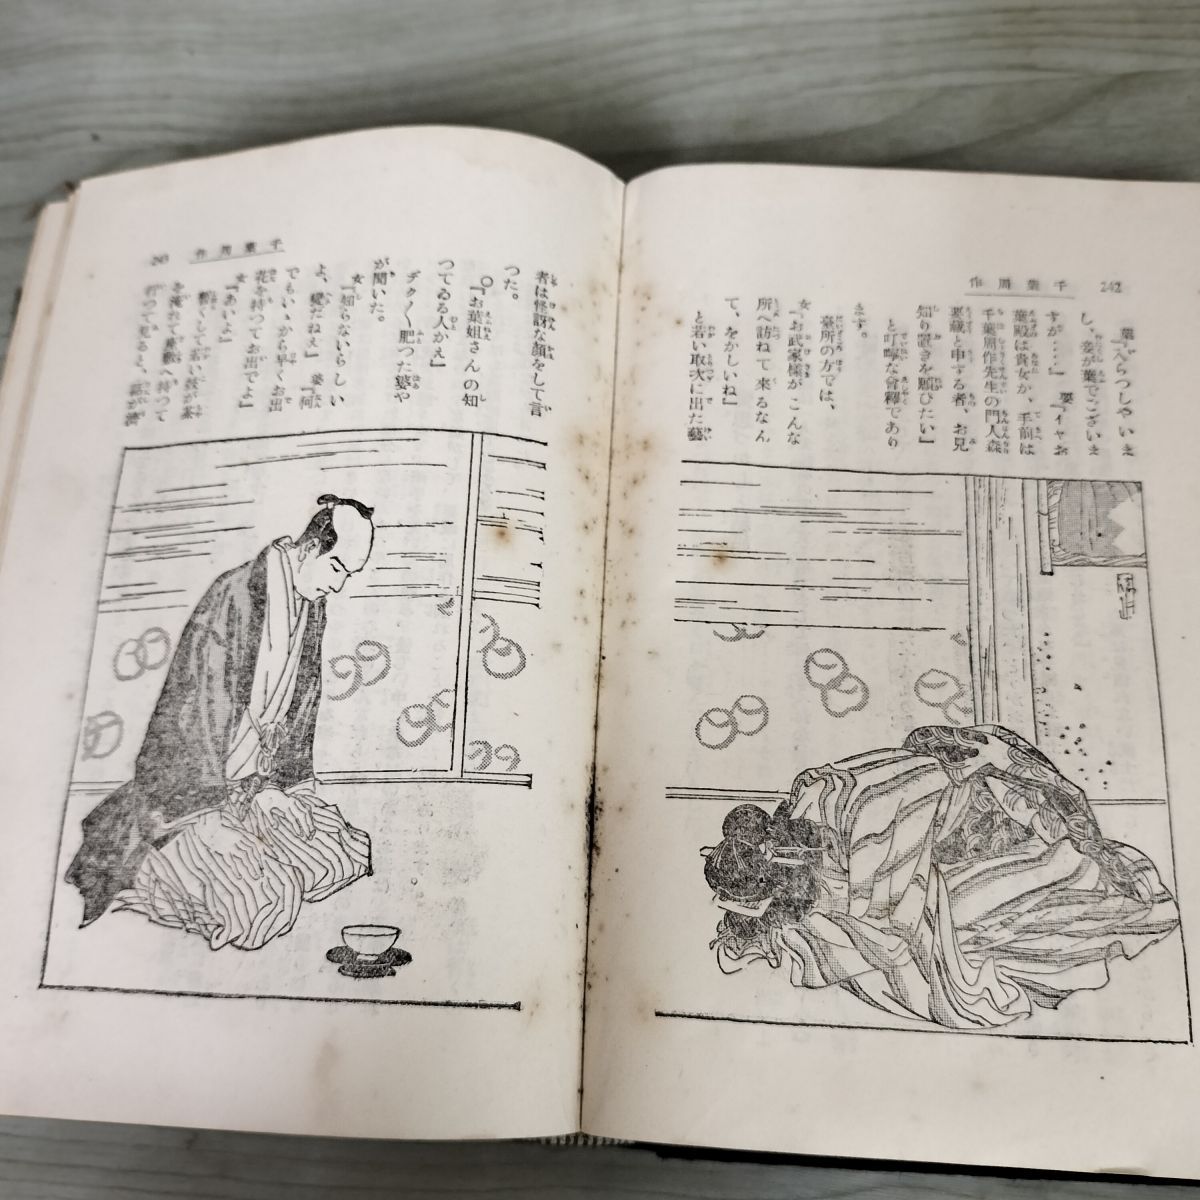 242
千葉周作
葉『入らつしやいえ
し、妾が葉でございえ
すが‥‥』 要『イヤお
葉殿は貴女か、手前は
千葉周作先生の門人森
要蔵と申する者、お見
知り置きを願ひたい』
と叮嚀な會釋であり
ます。
臺所の方では、
女『お武家様がこんな
所へ訪ねて來るなん
て、をかしいね』
と若い取次に出た藝
243
千葉周作
者は怪訝な顔をして言
つた。
○『お葉姐さんの知
つてゐる人かえ』
ヂク〱肥つた婆や
が聞いた。
女『知らないらしい
よ、變だねえ』 婆『何
でもいゝから早くお出
花を持つてお出でよ』
女『あいよ』
暫くして若い妓が茶
を淹れて座敷へ持つて
行つて見ると、